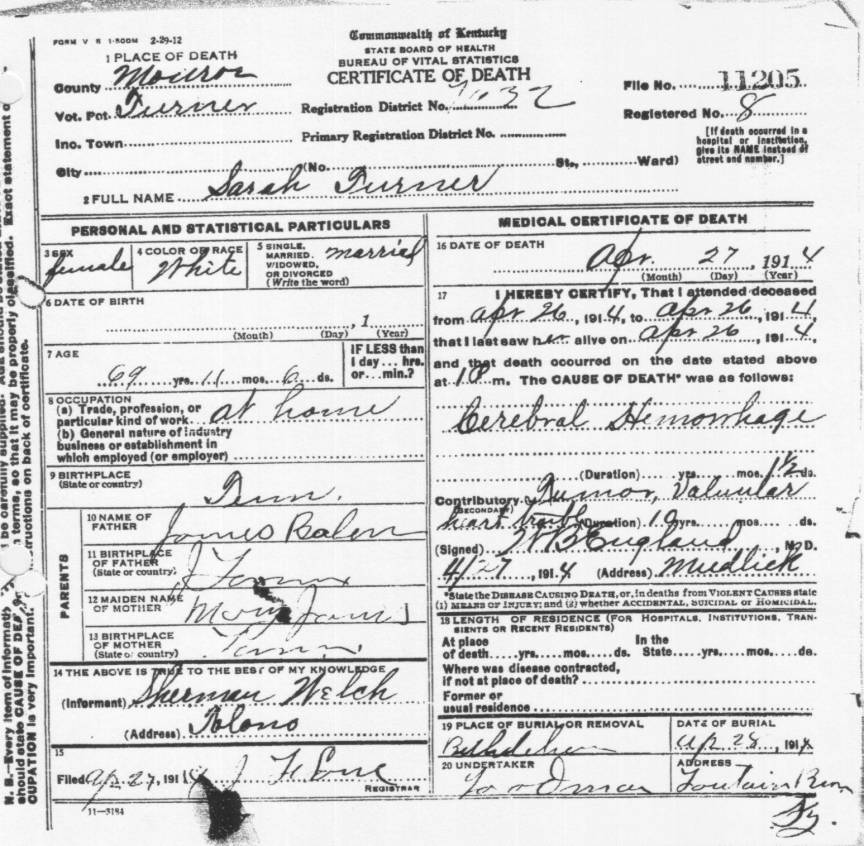 FORM V S 1-500M 2-29-12
Commonwealth of Kentucky
STATE BOARD OF HEALTH
BUREAU OF VITAL STATISTICS
CERTIFICATE OF DEATH
1 PLACE OF DEATH
County Monroe
Vot. Pct. Turner
Inc. Town
City (No. St., Ward)
Registration District No.
Primary Registration District No.
File No. 11205
Registered No. 8
[If death occurred in a
hospital or institution,
give its NAME instead of
street and number.]
2 FULL NAME Sarah Turner
PERSONAL AND STATISTICAL PARTICULARS
3 SEX female
4 COLOR OR RACE White
5 SINGLE, MARRIED, WIDOWED, OR DIVORCED (Write the word) married
6 DATE OF BIRTH
, 1
(Month) (Day) (Year)
7 AGE
69 yrs. 11 mos. 6 ds.
IF LESS than
1 day... hrs.
or... min.?
8 OCCUPATION
(a) Trade, profession, or
particular kind of work at home
(b) General nature of industry
business or establishment in
which employed (or employer)
9 BIRTHPLACE
(State or country) Tenn.
PARENTS
10 NAME OF FATHER James
11 BIRTHPLACE OF FATHER (State or country)
12 MAIDEN NAME OF MOTHER
13 BIRTHPLACE OF MOTHER (State or country)
14 THE ABOVE IS TRUE TO THE BEST OF MY KNOWLEDGE
(Informant) Sherman Welch
(Address)
15
Filed Apr 27, 1914
REGISTRAR
11-3184
MEDICAL CERTIFICATE OF DEATH
16 DATE OF DEATH
Apr. 27, 1914
(Month) (Day) (Year)
17 I HEREBY CERTIFY, That I attended deceased
from Apr 26, 1914, to Apr 26, 1914,
that I last saw her alive on Apr 26, 1914,
and that death occurred on the date stated above
at m. The CAUSE OF DEATH* was as follows:
Cerebral Hemorrhage
(Duration) yrs. mos. 1½ ds.
Contributory Tumor, Valvular
(SECONDARY)
heart (Duration) 10 yrs. mos. ds.
(Signed) W B England, M. D.
4/27, 1914 (Address) Mudlick
*State the DISEASE CAUSING DEATH, or, in deaths from VIOLENT CAUSES state
(1) MEANS OF INJURY; and (2) whether ACCIDENTAL, SUICIDAL or HOMICIDAL.
18 LENGTH OF RESIDENCE (FOR HOSPITALS, INSTITUTIONS, TRAN-
SIENTS OR RECENT RESIDENTS)
At place In the
of death yrs. mos. ds. State yrs. mos. ds.
Where was disease contracted,
if not at place of death?
Former or
usual residence
19 PLACE OF BURIAL OR REMOVAL
DATE OF BURIAL
Apr 28, 1914
20 UNDERTAKER
ADDRESS
Fountain Run
Ky.
N. B.—Every item of informati
be carefully supplied.
should state CAUSE OF DEA
terms, so that it may be properly classified. Exact statement o
CUPATION is very important.
tructions on back of certificate.